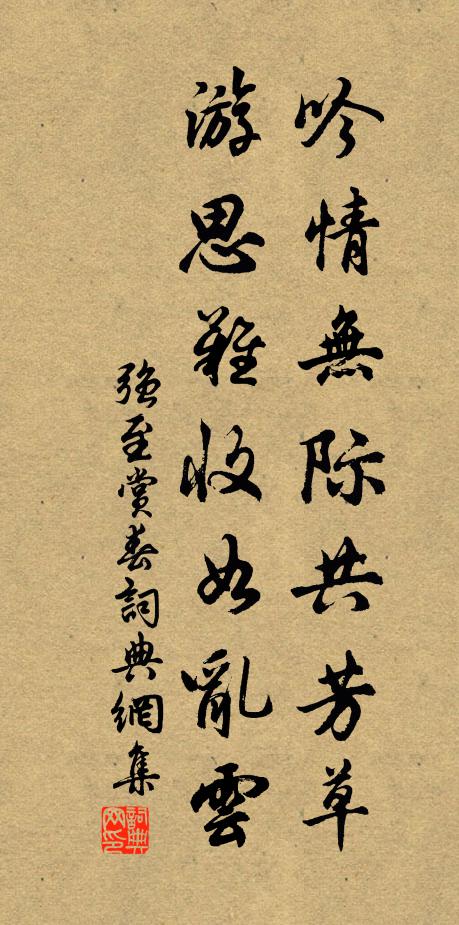 吟情無际共芳草
游思難收如亂雲
強至賞春詞典網集
詞典网印